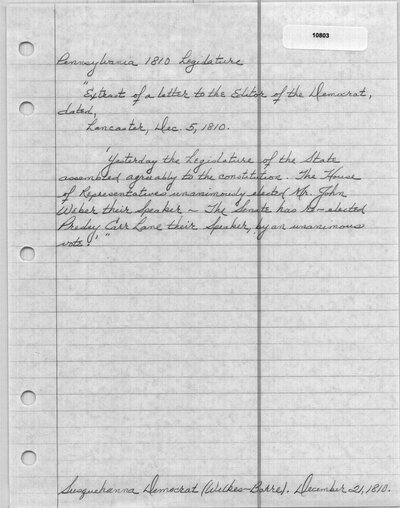 10803
Pennsylvania 1810 Legislature
"Extract of a letter to the Editor of the Democrat,
dated,
Lancaster, Dec. 5, 1810.
'Yesterday the Legislature of the State
assembled agreeably to the constitution. The House
of Representatives unanimously elected Mr. John
Weber their Speaker – The Senate has re-elected
Presley Carr Lane their Speaker, by an unanimous
vote.' "
Susquehanna Democrat (Wilkes-Barre). December 21, 1810.